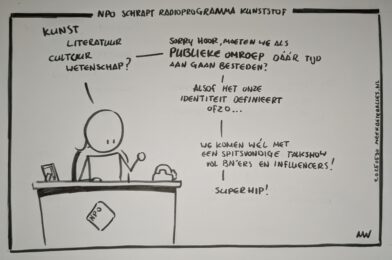 NPO SCHRAPT RADIOPROGRAMMA KUNSTSTOF
KUNST
LITERATUUR
CULTUUR
WETENSCHAP?
SORRY HOOR, MOETEN WE ALS
PUBLIEKE OMROEP DÁÁR TIJD
AAN GAAN BESTEDEN?
ALSOF HET ONZE
IDENTITEIT DEFINIEERT
OFZO...
WE KOMEN WÉL MET
EEN SPITSVONDIGE TALKSHOW
VOL BN'ERS EN INFLUENCERS!
SUPERHIP!
NPO
MW